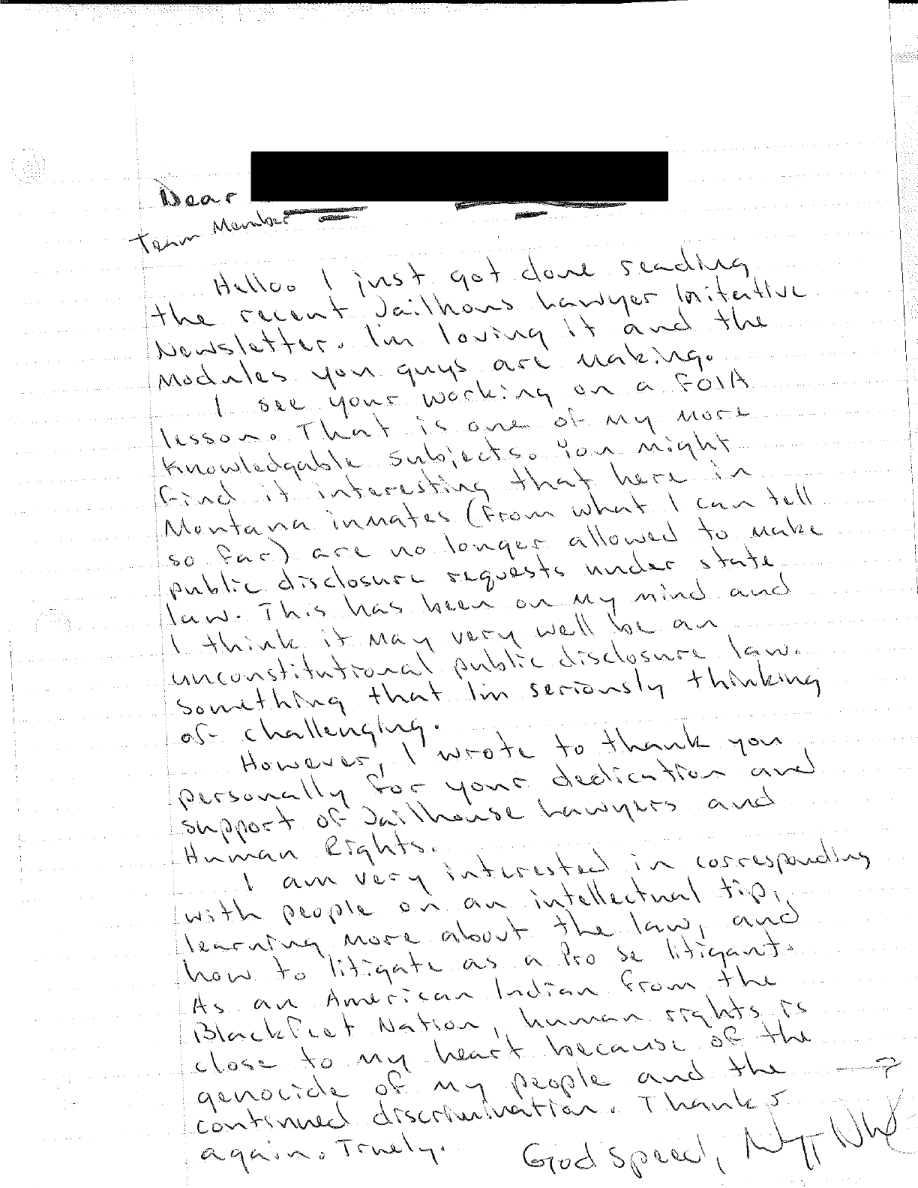 Dear
Team Member
Hello. I just got done reading
the recent Jailhous Lawyer Initative
Newsletter. I'm loving it and the
Modules you guys are making.
I see your working on a FOIA
lesson. That is one of my more
knowledgable subjects. You might
find it interesting that here in
Montana inmates (from what I can tell
so far) are no longer allowed to make
public disclosure requests under state
law. This has been on my mind and
I think it may very well be an
unconstitutional public disclosure law.
Something that I'm seriously thinking
of challenging.
However, I wrote to thank you
personally for your dedication and
support of Jailhouse Lawyers and
Human Rights.
I am very interested in corresponding
with people on an intellectual tip,
learning more about the law, and
how to litigate as a Pro se litigant.
As an American Indian from the
Blackfeet Nation, human rights is
close to my heart because of the
genocide of my people and the →
continued discrimination. Thanks
again. Truely.
God speed,